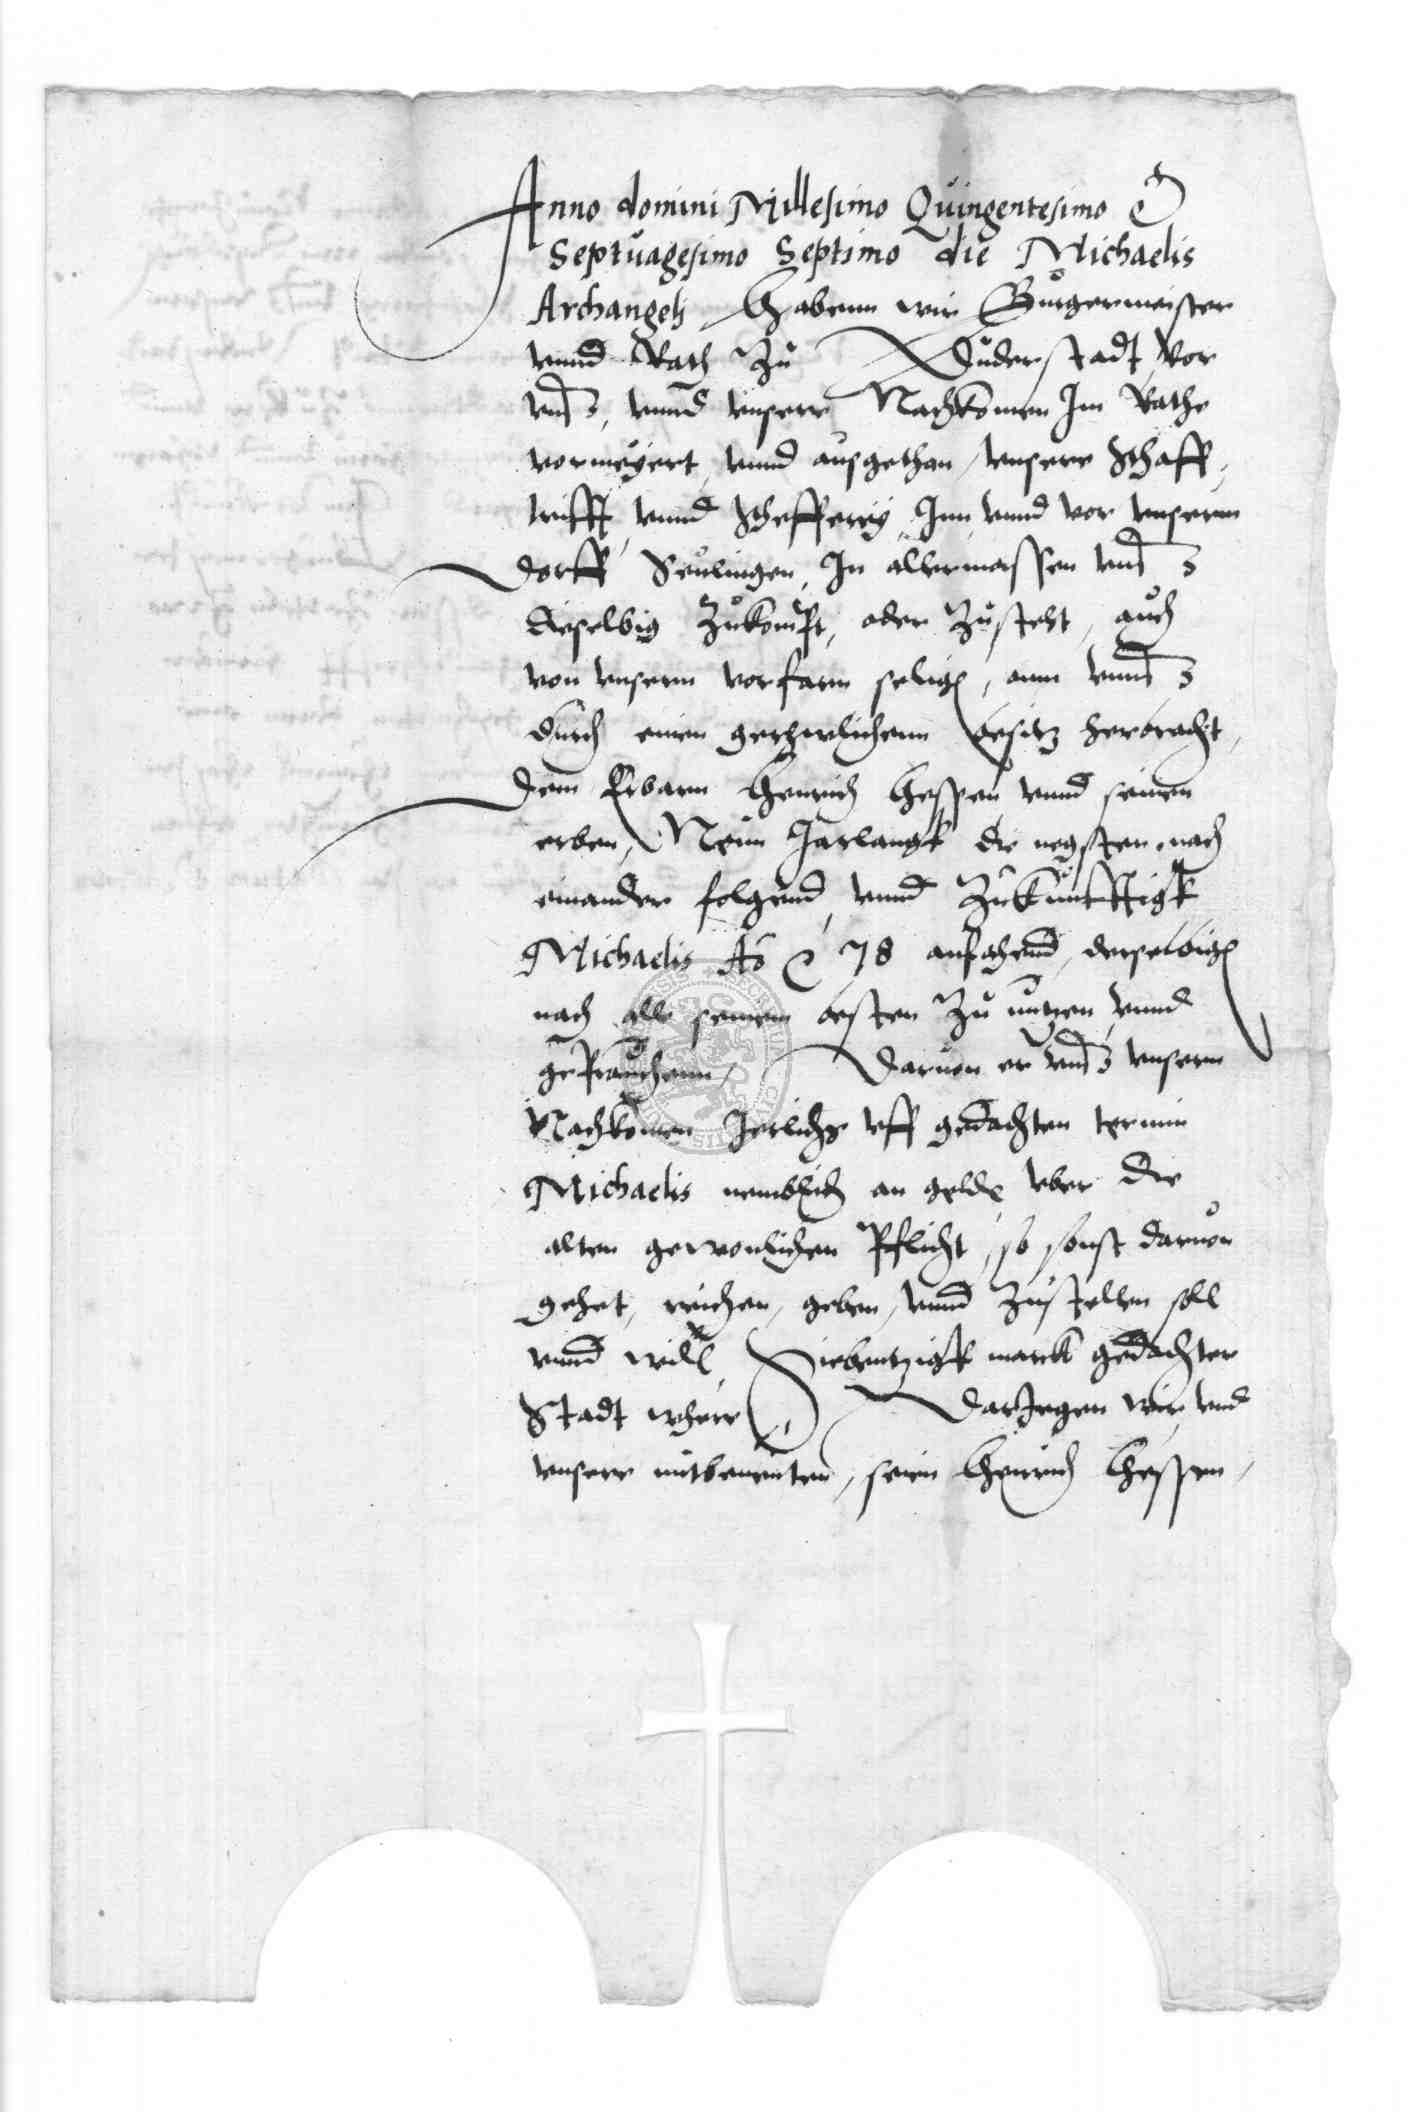 Anno domini Millesimo Quingentesimo &
Septuagesimo Septimo die Michaelis
Archangeli Habenn wir Burgermeister
vnnd Rath zu Duderstadt, vor
vnns, vnnd vnsere Nachkomen Im Rathe
vormeyert, vnnd ausgethan, vnsere Schaff,
trifft, vnnd Schefferey, Inn vnnd vor vnserm
dorff Seulingen, In allermassen vnns
dieselbig zukompt, oder zusteht, auch
von vnserm vorfarn seligen, ann vnns
durch einen geruhlichenn besitz herbracht,
dem Erbarn Henrich Hessen vnnd seinen
erben, Neun Jarlangk die negsten nach
einander folgend, vnnd zukunfftigk
Michaelis Ao &c 78 anfahend, derselbigen
nach alle seinem besten zu nutzen vnnd
geprauchenn, Daruon er vnns vnsern
Nachkomen Jerlichs vff gedachten termin
Michaelis nemblich an gelde vber die
alten gewonlichen Pflicht, so sonst daruon
gehet, reichen, geben, vnnd zustellen soll
vnnd will, Siebentzigk marck gedachter
Stadt where Darjegen wir vnd
vnsere mitbenenten, sein Henrich Hessen,